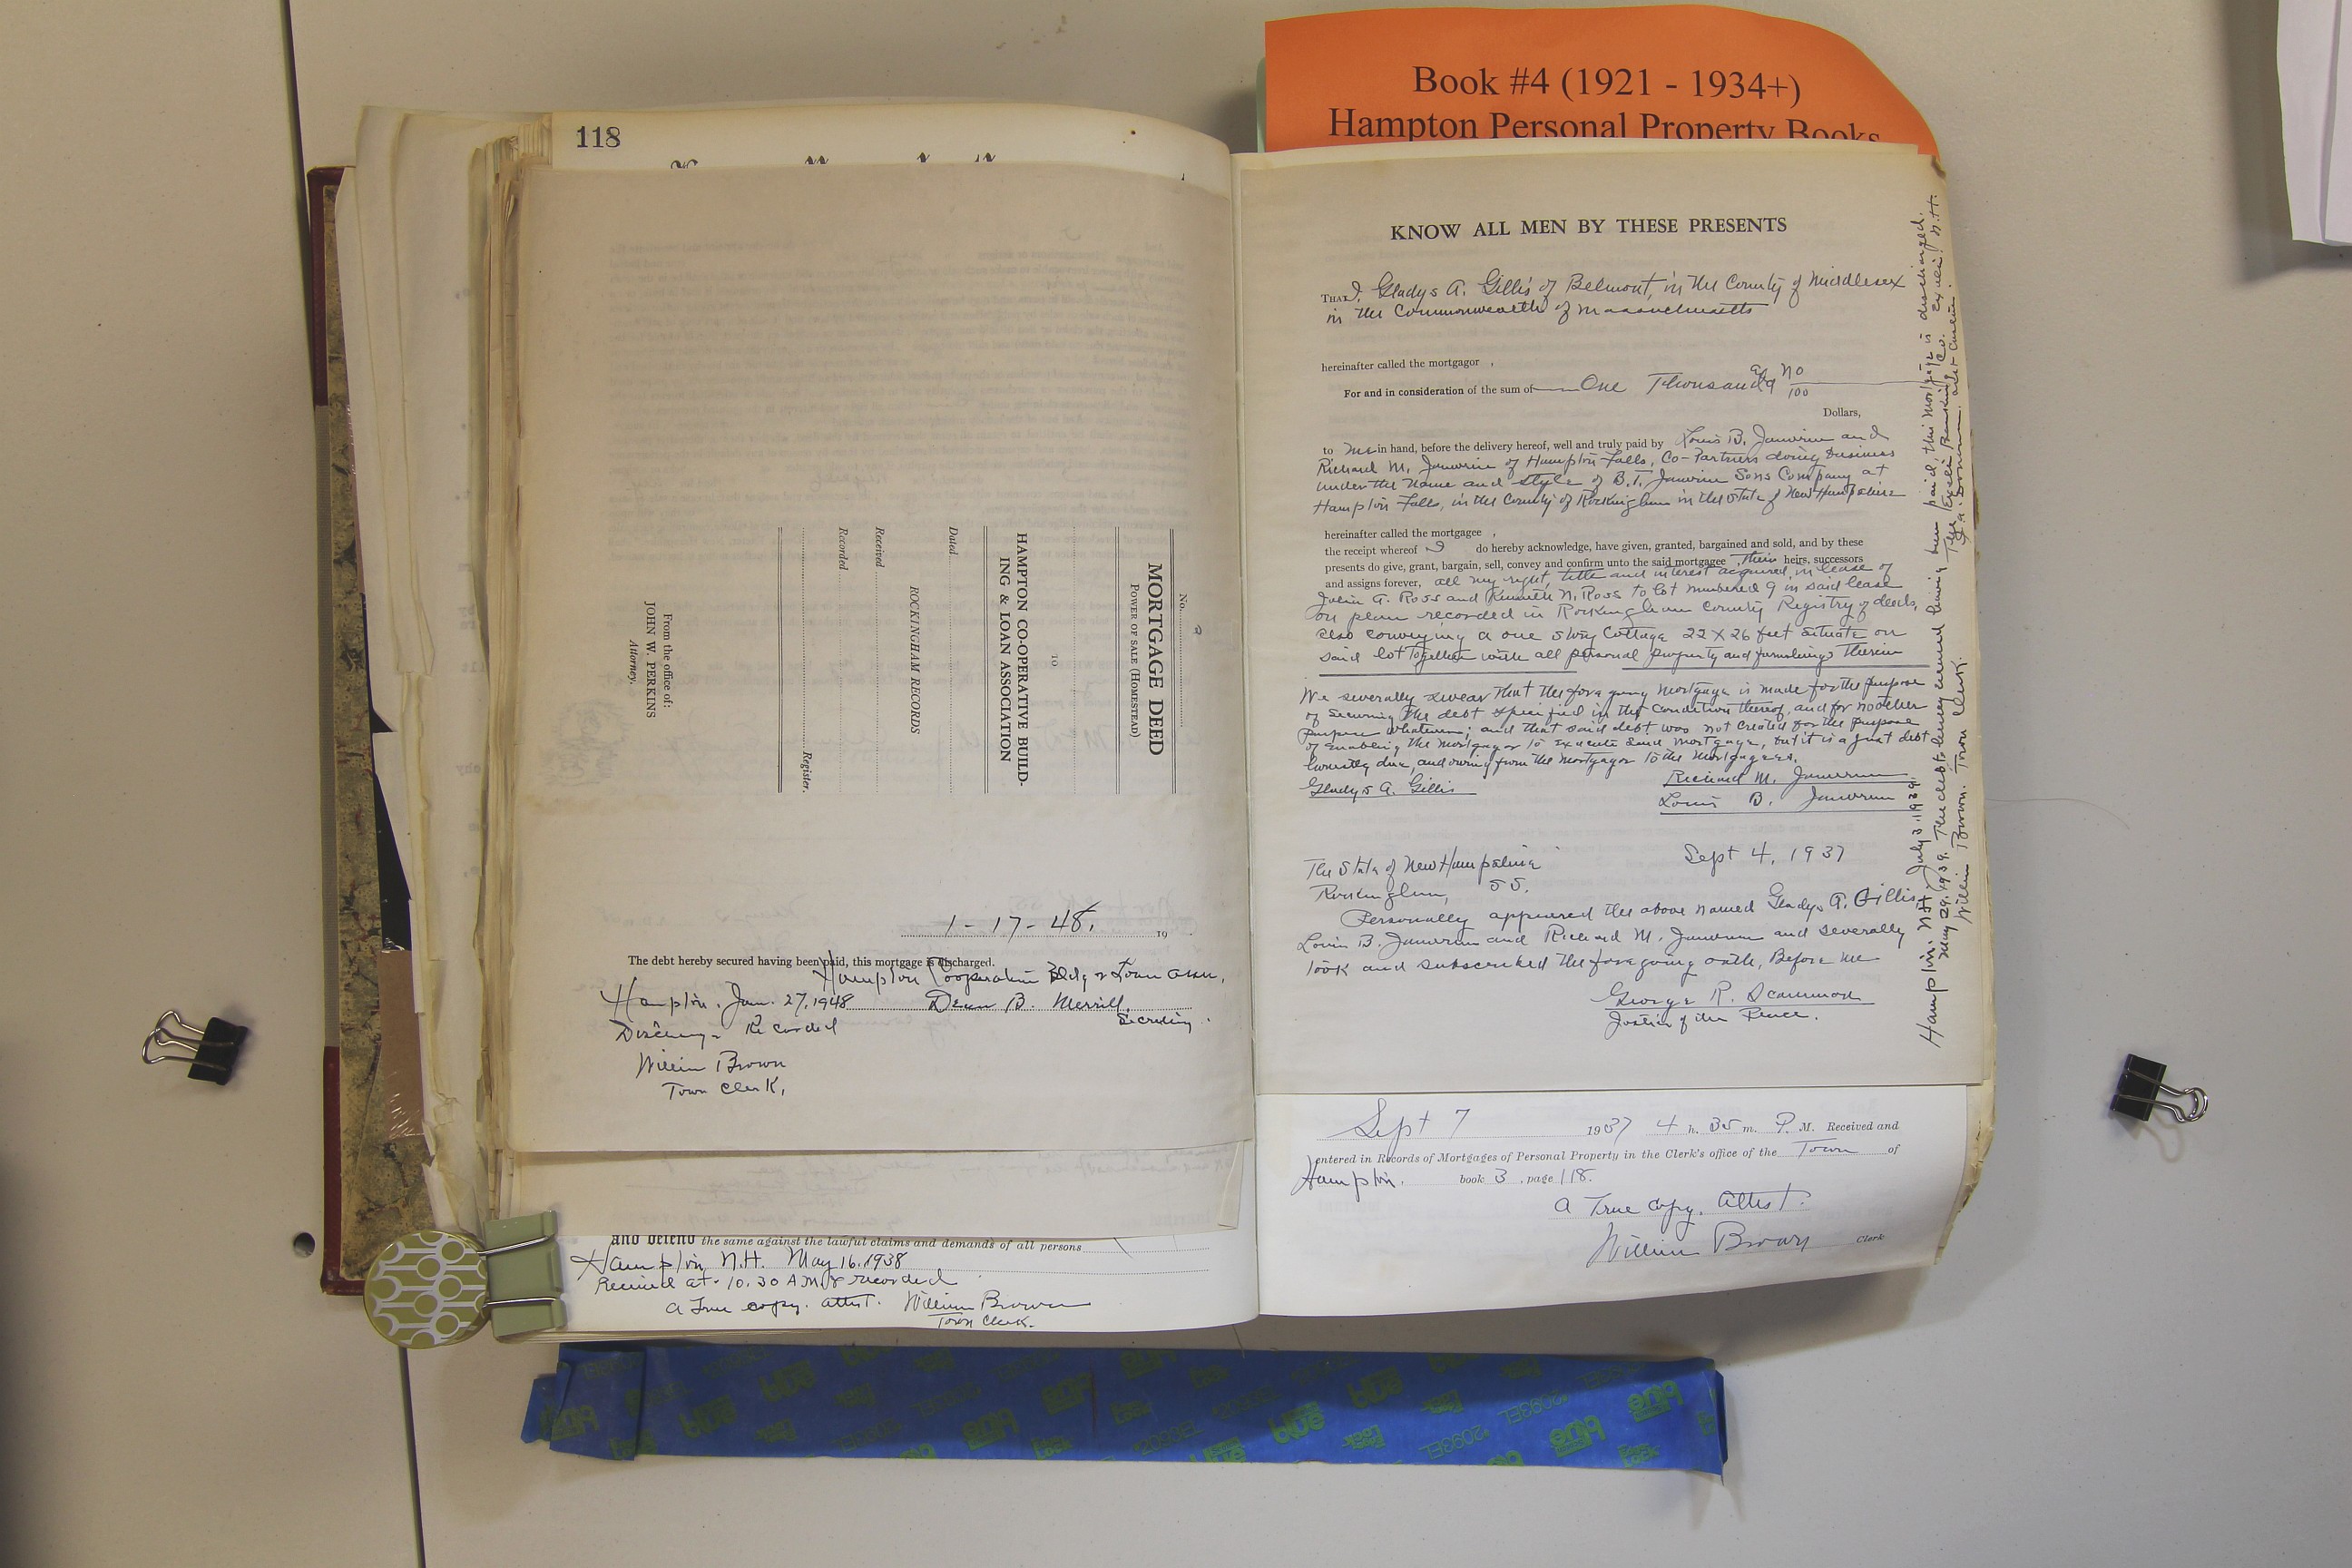 Book #4 (1921 - 1934+)
Hampton Personal Property Books
118
No. 2
MORTGAGE DEED
POWER OF SALE (HOMESTEAD)
TO
HAMPTON CO-OPERATIVE BUILD-
ING & LOAN ASSOCIATION
Dated
ROCKINGHAM RECORDS
Received
Recorded
Register.
From the office of:
JOHN W. PERKINS
Attorney.
1-17-48. 19
The debt hereby secured having been paid, this mortgage is discharged.
Hampton Cooperative Bldg & Loan Assn.
Hampton. Jan. 27, 1948 Dean B. Merrill
Discharge Recorded Secretary.
William Brown
Town Clerk.
and defend the same against the lawful claims and demands of all persons
Hampton, N.H. May 16. 1938
Received at 10.30 A M & recorded
A True copy. attest. William Brown
Town Clerk.
KNOW ALL MEN BY THESE PRESENTS
THAT I, Gladys A. Gillis of Belmont, in the County of Middlesex
in the Commonwealth of Massachusetts
hereinafter called the mortgagor ,
For and in consideration of the sum of One Thousand & no/100
Dollars,
to me in hand, before the delivery hereof, well and truly paid by Louis B. Janvrin and
Richard M. Janvrin of Hampton Falls, Co-Partners doing business
under the name and style of B.T. Janvrin Sons Company at
Hampton Falls, in the County of Rockingham in the State of New Hampshire
hereinafter called the mortgagee ,
the receipt whereof I do hereby acknowledge, have given, granted, bargained and sold, and by these
presents do give, grant, bargain, sell, convey and confirm unto the said mortgagee , their heirs, successors
and assigns forever, all my right, title and interest acquired in lease of
Julia A. Ross and Kenneth N. Ross to lot numbered 9 in said lease
on plan recorded in Rockingham County Registry of deeds,
also conveying a one story Cottage 22 X 26 feet situate on
said lot together with all personal property and furnishings therein
We severally swear that the foregoing mortgage is made for the purpose
of securing the debt specified in the condition thereof, and for no other
purpose whatever; and that said debt was not created for the purpose
of enabling the mortgagor to execute said mortgage, but it is a just debt
honestly due, and owing from the mortgagor to the mortgagees.
Richard M. Janvrin
Gladys A. Gillis
Louis B. Janvrin
The State of New Hampshire Sept 4, 1937
Rockingham, SS.
Personally appeared the above named Gladys A. Gillis,
Louis B. Janvrin and Richard M. Janvrin and severally
took and subscribed the foregoing oath, Before me
George R. Scammon
Justice of the Peace.
Hampton. N.H. July 3. 1939.
May 29, 1939. The debt hereby secured having been paid, this mortgage is discharged.
The Exeter Banking Co. Exeter N.H.
William Brown. Town Clerk.
Sept 7 1937 4 h. 35 m. P. M. Received and
entered in Records of Mortgages of Personal Property in the Clerk's office of the Town of
Hampton. book 3 , page 118.
A True Copy, Attest.
William Brown Clerk